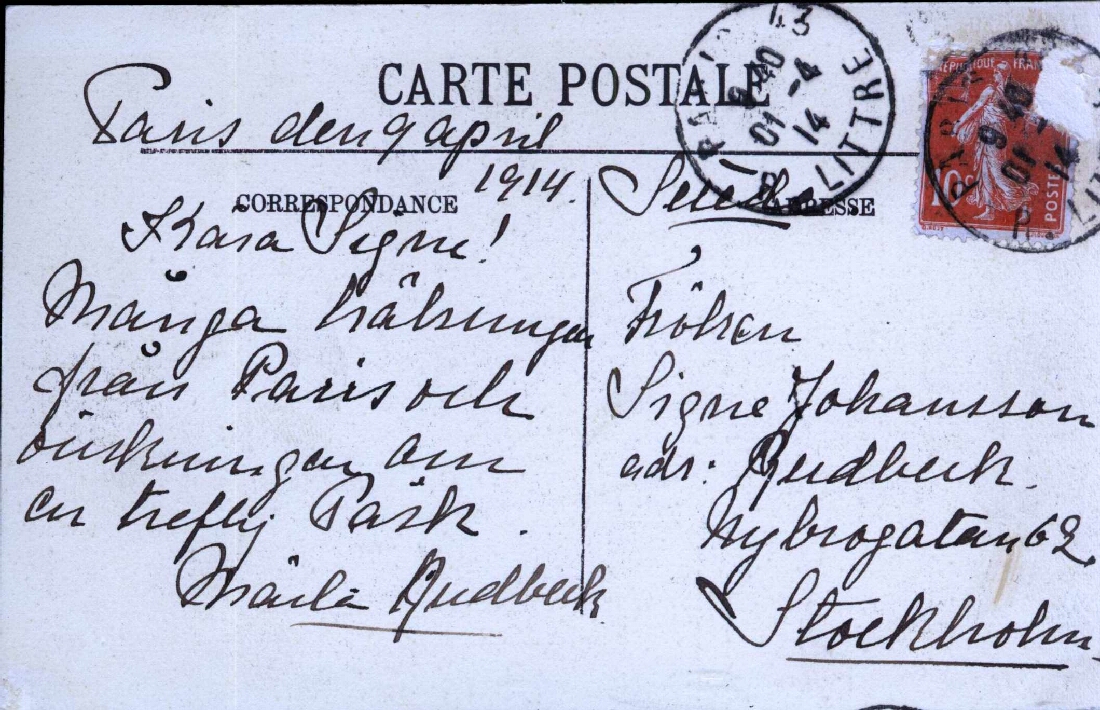 CARTE POSTALE
Paris den 9 april
1914.
CORRESPONDANCE
Kära Signe!
Många hälsningar
från Paris och
önskningar om
en treflig Påsk.
Märta Rudbeck
Suède
ADRESSE
Fröken
Signe Johansson
adr: Rudbeck.
Nybrogatan 62
Stockholm
PARIS 43
9 40
-4
14
R. LITTRE
REPUBLIQUE FRAN
10c
POSTES
PARIS
9 40
14
R. LIT